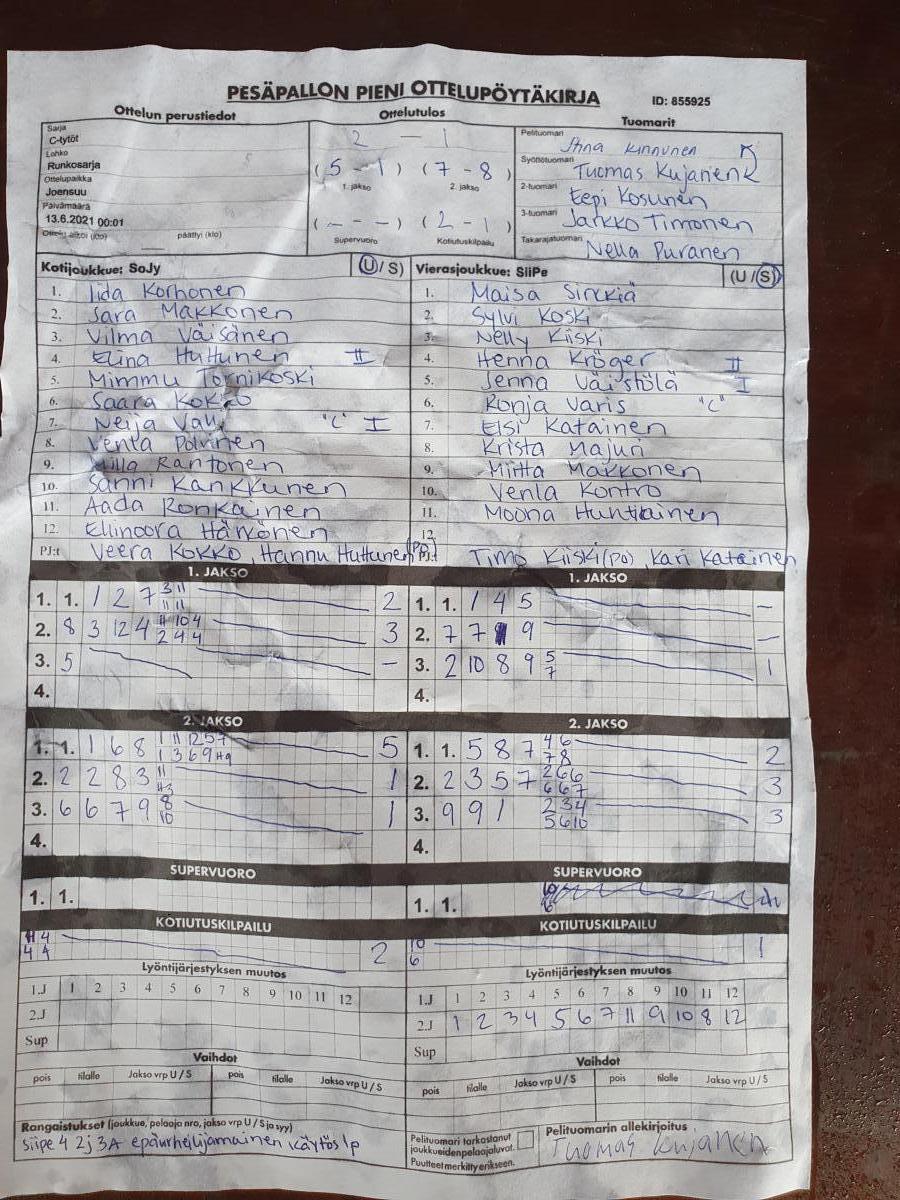 PESÄPALLON PIENI OTTELUPÖYTÄKIRJA
ID: 855925
Ottelun perustiedot
Ottelutulos
Tuomarit
Sarja
C-tytöt
Lohko
Runkosarja
Ottelupaikka
Joensuu
Päivämäärä
13.6.2021 00:01
Ottelu alkoi (klo) päättyi (klo)
2 — 1
(5 - 1) (7 - 8)
1. jakso 2. jakso
(- - -) (2 - 1)
Supervuoro Kotiutuskilpailu
Pelituomari
Stina Kinnunen
Syöttötuomari
Tuomas Kujanen
2-tuomari
Eepi Kosunen
3-tuomari
Jarkko Timonen
Takarajatuomari
Nella Puranen
Kotijoukkue: SoJy (U / S)
1. Iida Korhonen
2. Sara Makkonen
3. Vilma Väisänen
4. Elina Huttunen II
5. Mimmu Tornikoski
6. Saara Kokko
7. Neija "C" I
8. Venla Polvinen
9. Milla Rantonen
10. Sanni Kankkunen
11. Aada Ronkainen
12. Ellinoora Härkönen
PJ:t Veera Kokko, Hannu Huttunen (PP)
Vierasjoukkue: SiiPe (U / S)
1. Maisa Sirkkiä
2. Sylvi Koski
3. Nelly Kiiski
4. Henna Kröger II
5. Jenna Väistölä I
6. Ronja Varis "C"
7. Elsi Katainen
8. Krista Majuri
9. Miitta Makkonen
10. Venla Kontro
11. Moona Huntkainen
12.
PJ:t Timo Kiiski (PP), Kari Katainen
1. JAKSO
1. 1. 1 2 7 3 11 2
11 11
2. 8 3 12 4 11 10 4 3
2 4 4
3. 5 -
4.
1. JAKSO
1. 1. 1 4 5 -
2. 7 7 9 -
3. 2 10 8 9 5 1
7
4.
2. JAKSO
1. 1. 1 6 8 1 11 12 5 7 5
1 3 6 9 H9
2. 2 2 8 3 11 1
H3
3. 6 6 7 9 8 1
10
4.
2. JAKSO
1. 1. 5 8 7 4 6 2
7 8
2. 2 3 5 7 2 6 6 3
6 6 7
3. 9 9 1 2 3 4 3
5 6 10
4.
SUPERVUORO
1. 1.
SUPERVUORO
1. 1.
KOTIUTUSKILPAILU
11 4 2
4 4
KOTIUTUSKILPAILU
10 1
6
Lyöntijärjestyksen muutos
1.J 1 2 3 4 5 6 7 8 9 10 11 12
2.J
Sup
Lyöntijärjestyksen muutos
1.J 1 2 3 4 5 6 7 8 9 10 11 12
2.J 1 2 3 4 5 6 7 11 9 10 8 12
Sup
Vaihdot
pois tilalle Jakso vrp U / S pois tilalle Jakso vrp U / S
Vaihdot
pois tilalle Jakso vrp U / S pois tilalle Jakso vrp U / S
Rangaistukset (joukkue, pelaaja nro, jakso vrp U / S ja syy)
Siipe 4 2j 3A epäurheilijamainen käytös 1p
Pelituomari tarkastanut
joukkueidenpelaajaluvat.
Puutteet merkitty erikseen.
Pelituomarin allekirjoitus
Tuomas Kujanen